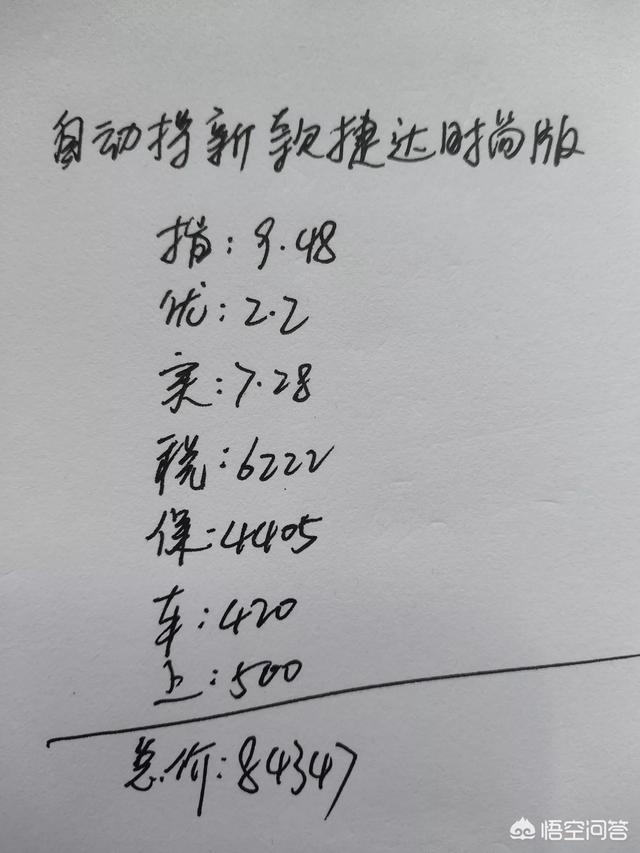 自动挡新款捷达时尚版
指:9.48
优:2.2
实:7.28
税:6222
保:4405
车:420
上:500
总价:84347
悟空问答